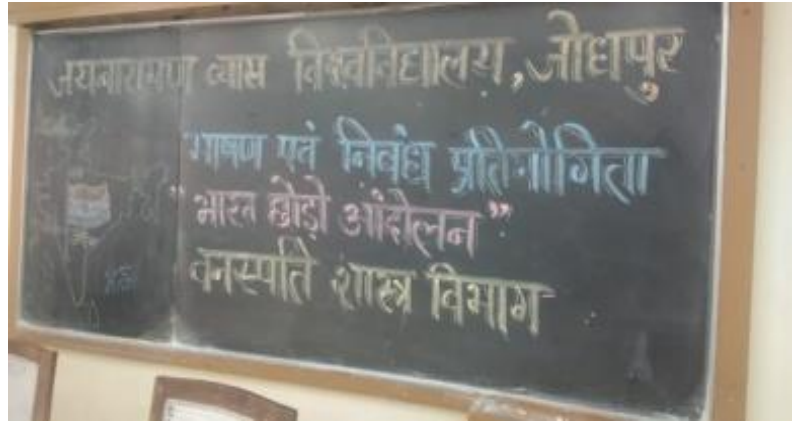 जयनारायण व्यास विश्वविद्यालय, जोधपुर
भाषण एवं निबंध प्रतियोगिता
"भारत छोड़ो आंदोलन"
वनस्पति शास्त्र विभाग